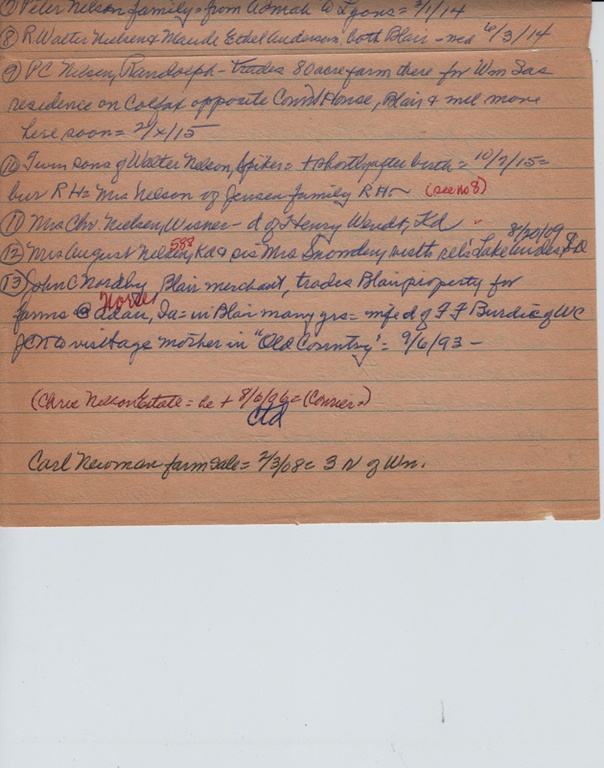 ⑦ Peter Nelson family = from Oomah to Lyons = 3/1/14
⑧ R. Walter Nielsen & Maude Ethel Anderson, both Blair - med 6/3/14
⑨ PC Nelsen, Randolph - trades 80 acre farm there for Wm Sas
residence on Colfax opposite Court House, Blair & mel move
here soon = 2/x/15
⑩ Twin sons of Walter Nelson, Spiker = + shortly after birth = 10/7/15 =
bur RH = Mrs Nelson of Jensen family RH - (see no 8)
⑪ Mrs Chr. Nielsen, Wisner - d of Henry Wendt, Kd "
8/20/09
⑫ Mrs August Nelsen, Kd & sis Mrs visit rel's Lake Andes, SD
588
⑬ John C Nordby, Blair merchant, trades Blair property for
Horse
farms @ Adair, Ia = in Blair many yrs = wife d of F F Burdic of WC
JCN to visit age mother in "Old Country" = 9/6/93 -
(Chris Nelson Estate = he + 8/6/96 = (Courier)
Ctd
Carl Newman farm sale = 2/3/08 = 3 N of Wn.